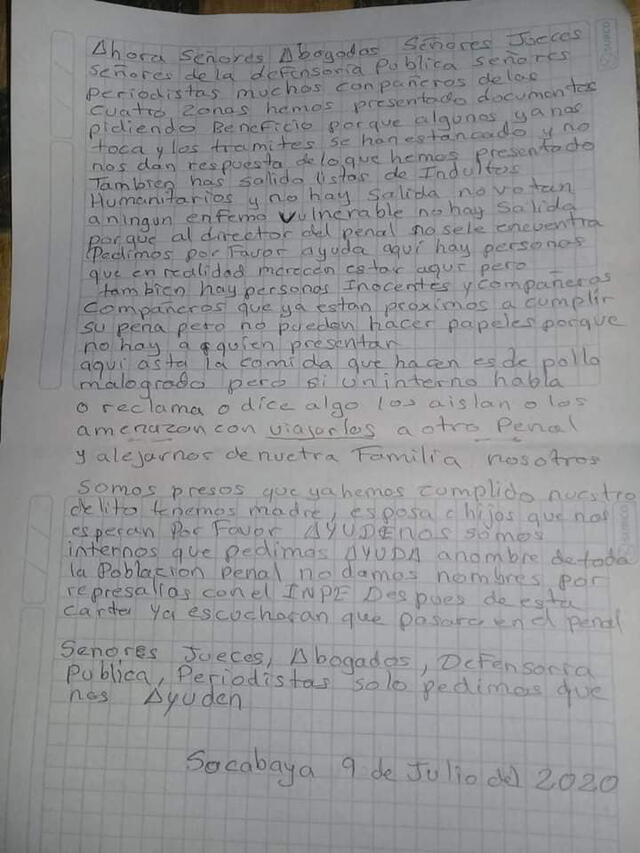 Ahora Señores Abogados Señores Jueces
señores de la defensoria Publica señores
Periodistas muchos conpañeros de las
cuatro zonas hemos presentado documentos
pidiendo Beneficio porque algunos ya nos
toca y los tramites se han estancado y no
nos dan respuesta de lo que hemos presentado
Tambien has salido listas de Indultos
Humanitarios y no hay salida no votan
aningun enfemo vulnerable no hay salida
porque al director del penal no sele encuentra
Pedimos por Favor ayuda aqui hay personas
que en realidad merecen estar aqui pero
tambien hay personas Inocentes y compañeros
compañeros que ya estan proximos a cumplir
su pena pero no pueden hacer papeles porque
no hay a quien presentar
aqui asta la comida que hacen es de pollo
malogrado pero si un interno habla
o reclama o dice algo los aislan o los
amenazan con viajarlos a otro Penal
y alejarnos de nuetra Familia nosotros
somos presos que ya hemos cumplido nuestro
delito tenemos madre, esposa e hijos que nos
esperan Por Favor AYUDENOS somos
internos que pedimos AYUDA anombre de toda
la Poblacion penal no damos nombres por
represalias con el INPE Despues de esta
carta ya escucharan que pasara en el penal
Señores Jueces, Abogados, Defensoria
Publica, Periodistas solo pedimos que
nos Ayuden
Socabaya 9 de Julio del 2020
SURCO
SURCO